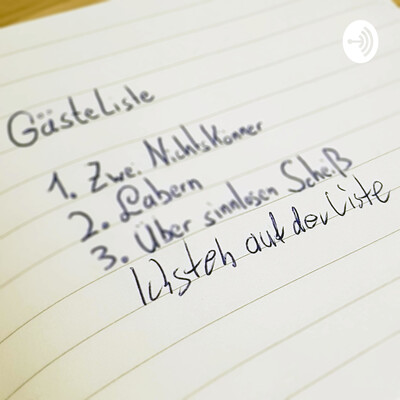 Gästeliste
1. Zwei Nichtskönner
2. Labern
3. Über sinnlosen Scheiß
Ichsteh auf der Liste